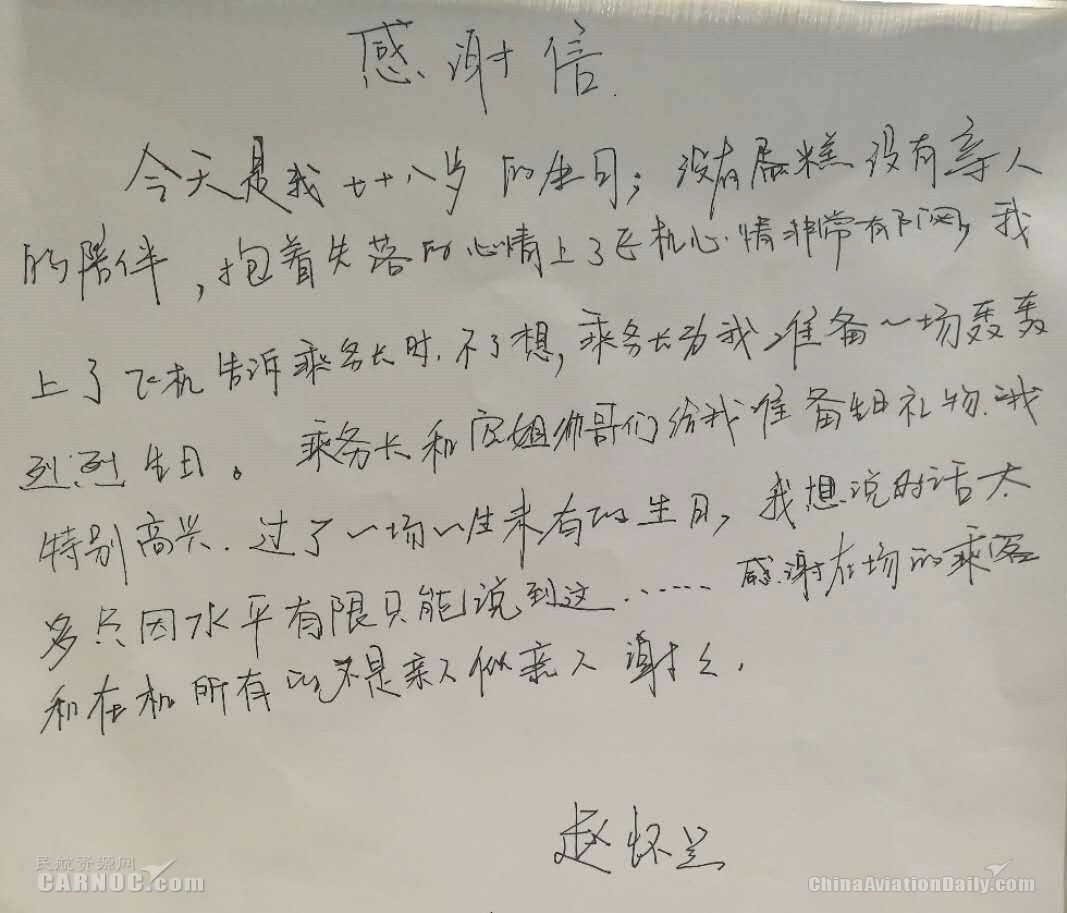 感谢信
今天是我七十八岁的生日；没有蛋糕没有亲人
的陪伴，抱着失落的心情上了飞机心情非常有 我
上了飞机告诉乘务长时.不了想，乘务长为我准备一场轰轰
烈烈生日。乘务长和空姐帅哥们给我准备生日礼物.我
特别高兴.过了一场一生未有的生日，我想说的话太
多只因水平有限只能说到这……感谢在场的乘客
和在机所有的不是亲人似亲人谢谢.
赵怀兰
民航资源网
CARNOC.com
ChinaAviationDaily.com